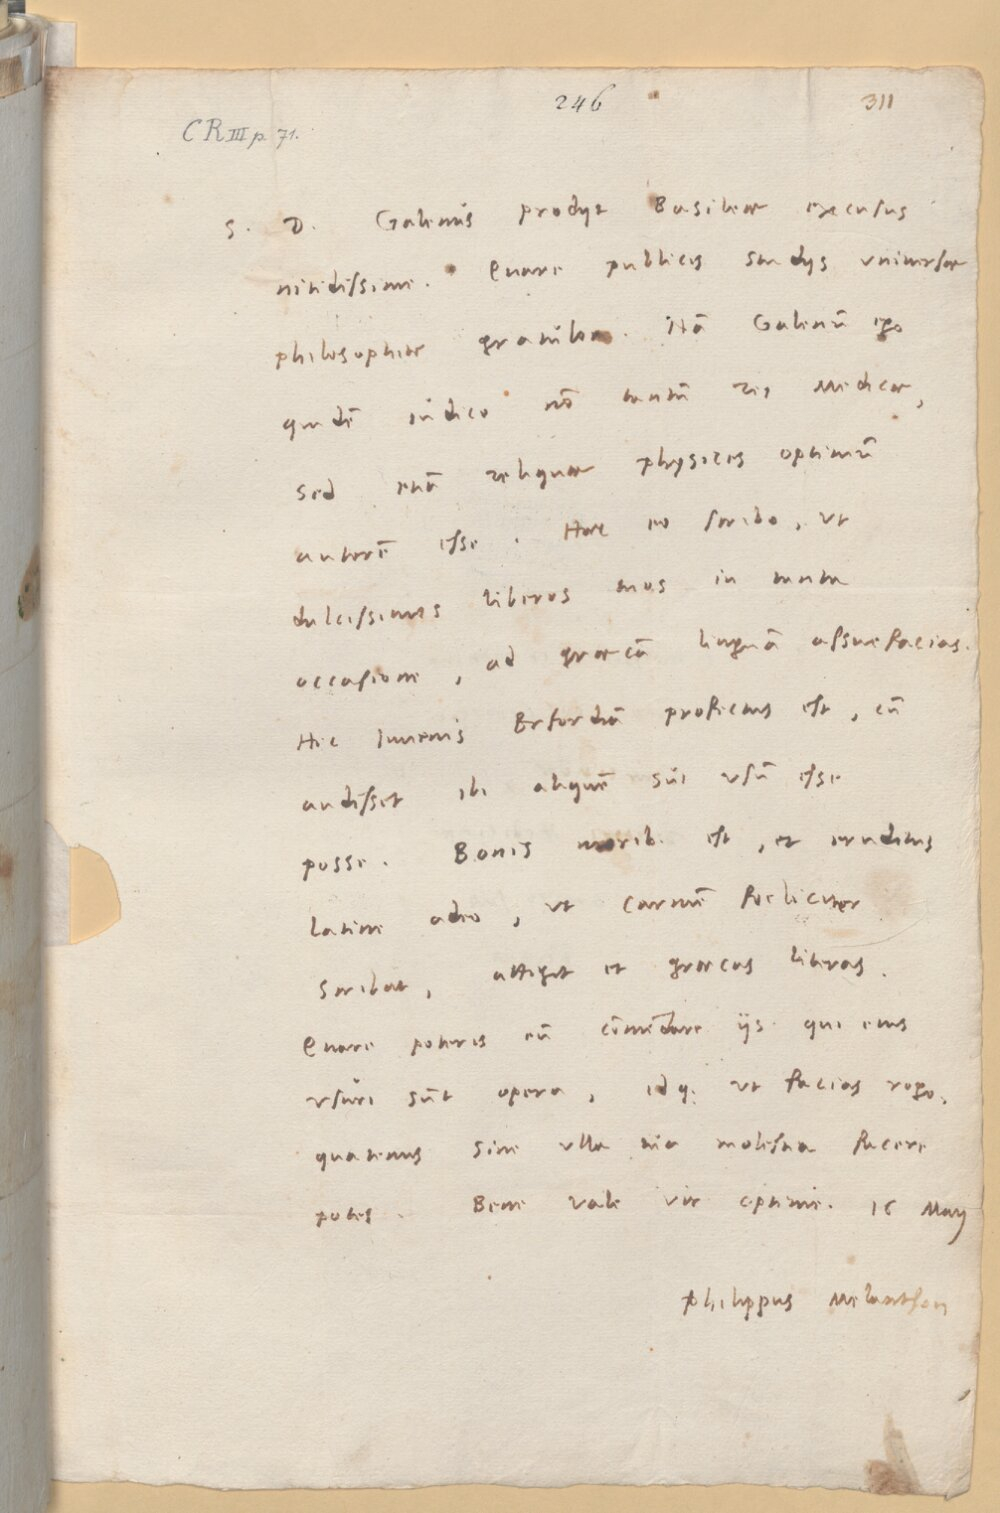 246
311
CR III p 71.
S. D. Galenus prodyt Basileae excusus
nitidissime. Quare publicis studys vniuersae
philosophiae gratulor. Nā Galenū ego
quidē iudico nō tantū rei Medicae,
sed etiā reliquae physices optimū
autorē esse. Haec eo scribo, vt
dulcissimos liberos tuos in tanta
occasione, ad graecā linguā assuefacias.
Hic Iuuenis Erfordiā profectus est, cū
audisset ibi aliquē sui vsū esse
posse. Bonis morib. est, et eruditus
latine adeo, vt carmē foeliciter
scribat, attigit et graecas literas.
Quare poteris eū cōmēdare ijs qui eius
vsuri sūt opera, idq. vt facias rogo,
quatenus sine vlla tua molestia facere
potes. Bene vale vir optime. 15 May
Philippus Melanthon